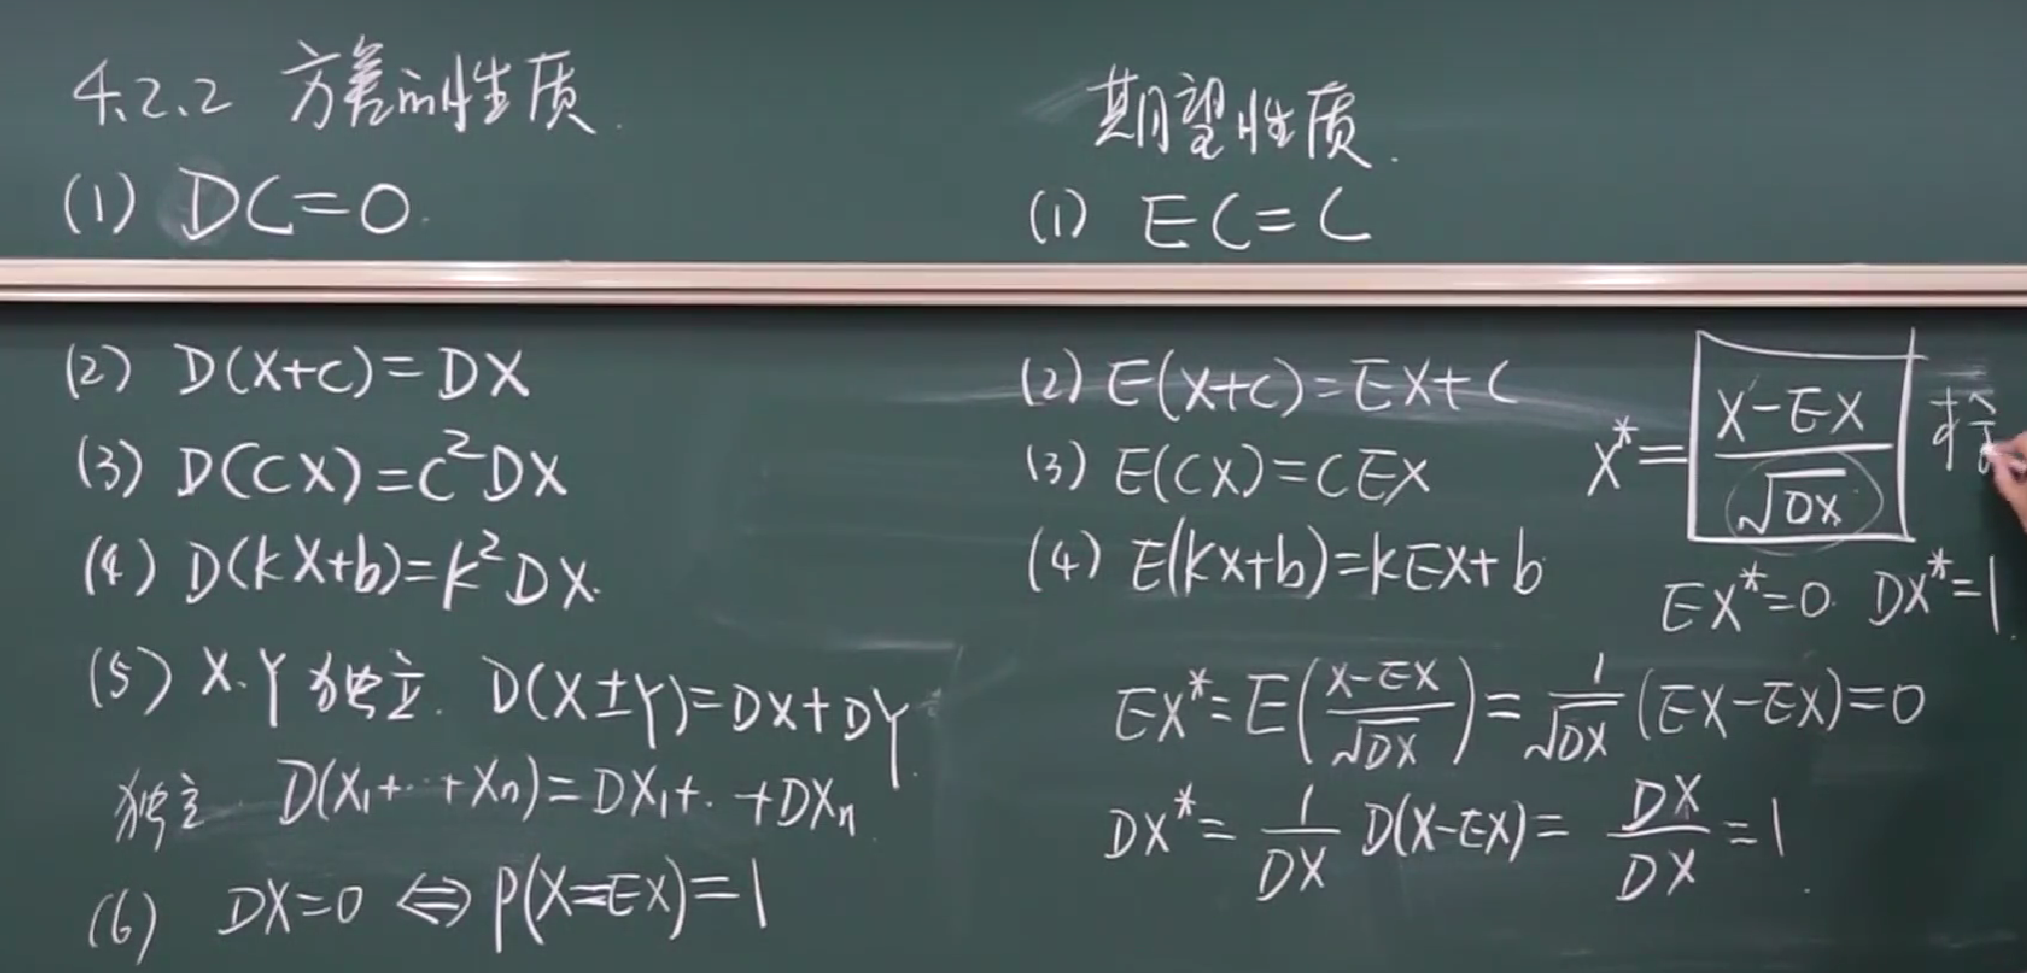 4.2.2 方差的性质.
(1) DC=0.
(2) D(X+C)=DX
(3) D(CX)=C²DX
(4) D(kX+b)=k²DX.
(5) X.Y独立. D(X±Y)=DX+DY.
独立. D(X₁+..+Xₙ)=DX₁+. +DXₙ.
(6) DX=0 ⇔ P(X=EX)=1
期望性质.
(1) EC=C
(2) E(X+C)=EX+C
(3) E(CX)=CEX
(4) E(kX+b)=kEX+b
X*= (X-EX)/√DX
EX*=0. DX*=1.
EX*=E((X-EX)/√DX)=1/√DX (EX-EX)=0
DX*= 1/DX D(X-EX)= DX/DX =1.